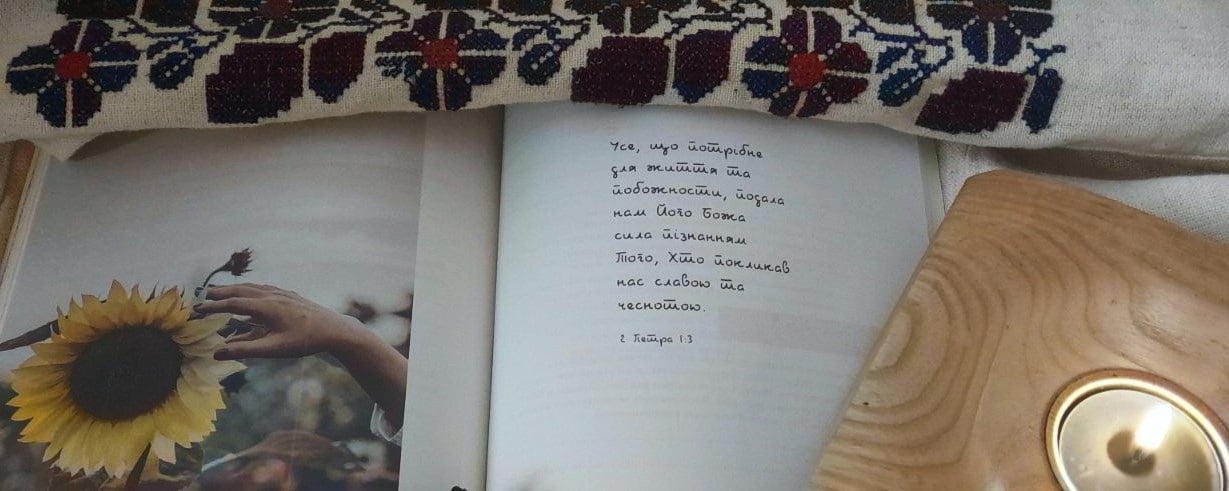 Усе, що потрібне
для життя та
побожности, подала
нам Його Божа
сила пізнанням
Того, Хто покликав
нас славою та
чеснотою.
2 Петра 1:3